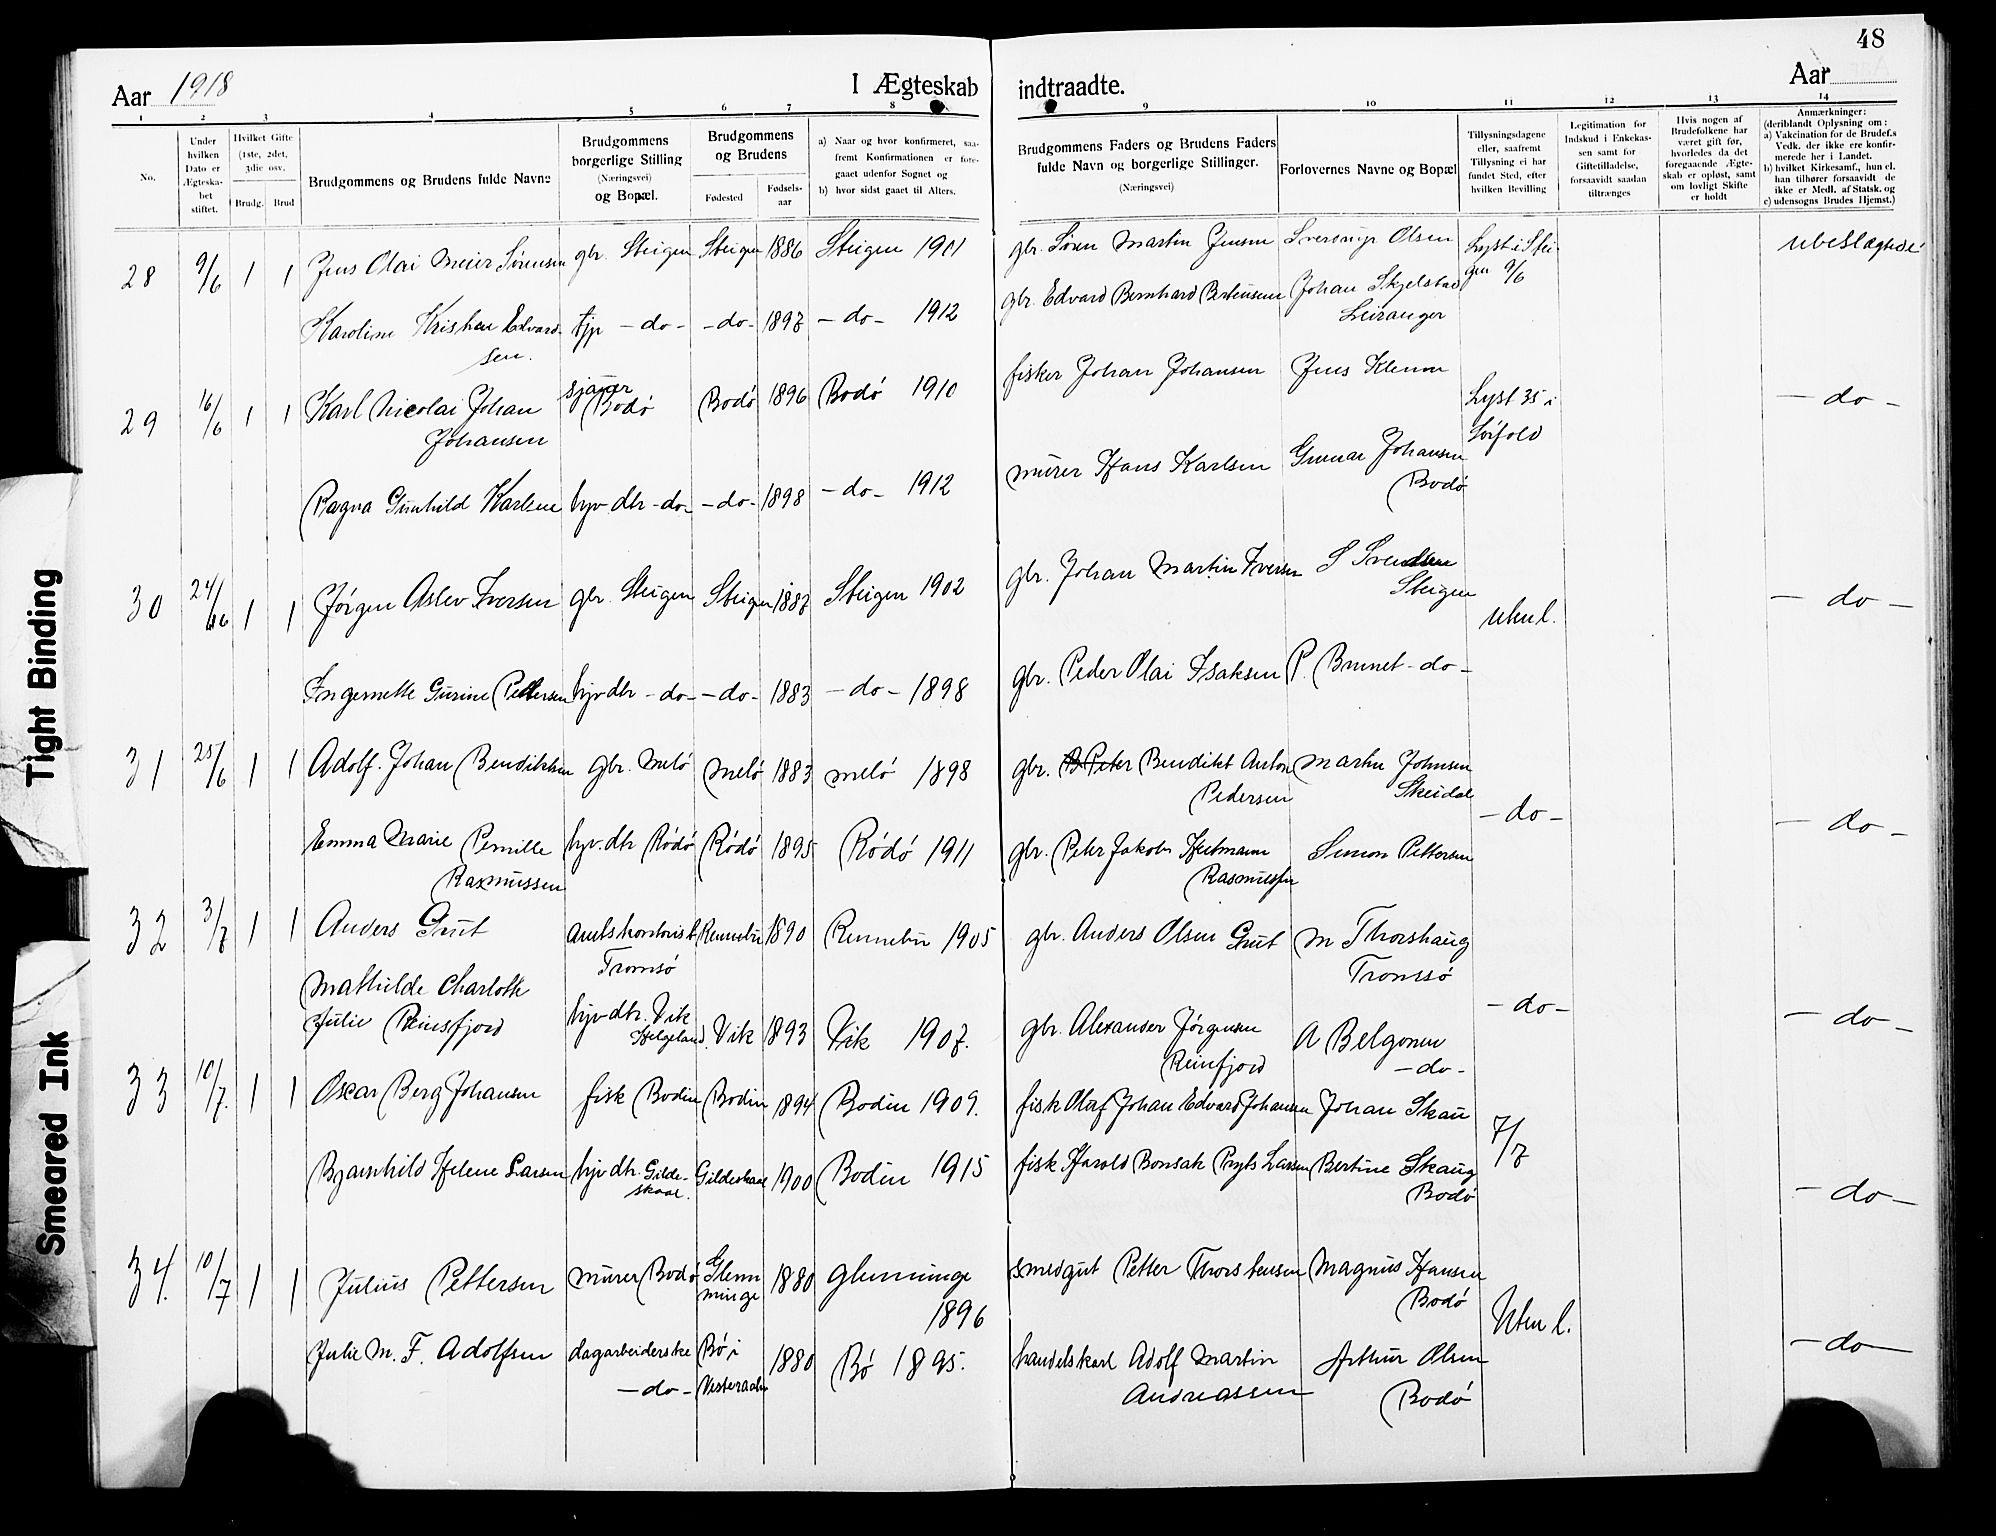 48
Aar 1918
I Ægteskab indtraadte.
Aar
1 2 3 4 5 6 7 8 9 10 11 12 13 14
No.
Under hvilken Dato er Ægteskabet stiftet.
Hvilket Gifte (1ste, 2det, 3die osv.
Brudg. Brud
Brudgommens og Brudens fulde Navne
Brudgommens borgerlige Stilling (Næringsvei) og Bopæl.
Brudgommens og Brudens
Fødested
Fødselsaar
a) Naar og hvor konfirmeret, saafremt Konfirmationen er foregaaet udenfor Sognet og
b) hvor sidst gaaet til Alters.
Brudgommens Faders og Brudens Faders fulde Navn og borgerlige Stillinger. (Næringsvei)
Forlovernes Navne og Bopæl
Tillysningsdagene eller, saafremt Tillysning ei har fundet Sted, efter hvilken Bevilling
Legitimation for Indskud i Enkekassen samt for Giftetilladelse, forsaavidt saadan tiltrænges
Hvis nogen af Brudefolkene har været gift før, hvorledes da det foregaaende Ægteskab er opløst, samt om lovligt Skifte er holdt
Anmærkninger: (deriblandt Oplysning om:
a) Vakcination for de Brudef.s Vedk. der ikke ere konfirmerede her i Landet.
b) hvilket Kirkesamf., hun el. han tilhører forsaavidt de ikke er Medl. af Statsk. og
c) udensogns Brudes Hjemst.)
28 9/6 1 1 Jens Olai Meier Sørensen gbr. Steigen Steigen 1886 Steigen 1901 gbr. Søren Martin Jensen Sverdrup Olsen Lyst i Steigen 9/6 ubeslægtede
Karoline Kristine Edvardsen. tjp -do- -do- 1897 -do- 1912 gbr. Edvard Bernhard Berteusen Johan Skjelstad Leiranger
29 16/6 1 1 Karl Nicolai Johan Johansen sjøfar Bodö Bodö 1896 Bodö 1910 fisker Johan Johansen Jens Klemm Lyst 35 i Sørfold -do-
Ragna Gunhild Karlsen hjv. dtr -do- -do- 1898 -do- 1912 murer Hans Karlsen Gunnar Johansen Bodö
30 24/6 1 1 Jørgen Aslev Iversen gbr. Steigen Steigen 1887 Steigen 1902 gbr. Johan Martin Iversen S Svendsen Steigen uten l. -do-
Ingernette Gurine Pettersen hjv dtr -do- -do- 1883 -do- 1898 gbr. Peder Olai Isaksen P. Brunet -do-
31 25/6 1 1 Adolf. Johan Bendiktsen gbr. Melö Melö 1883 Melö 1898 gbr. Bendikt Anton Pedersen Martin Johnsen Skeidal -do- -do-
Emma Marie Pernille Rasmussen hjv. dtr Rödö Rödö 1895 Rödö 1911 gbr. Peter Jakob Heitmann Rasmussen Simon Pettersen
32 3/7 1 1 Anders Grut amtskontorist Tromsö Rennebu 1890 Rennebu 1905 gbr. Anders Olsen Grut M Thorshaug Tromsö -do- -do-
Mathilde Charlotte Julie Reinsfjord hjv dtr. Vik Helgeland. Vik 1893 Vik 1907. gbr. Alexander Jørgensen Reinfjord A Belgonen -do-
33 10/7. 1 1 Oscar Berg Johansen fisk Bodin Bodin 1894 Bodin 1909. fisk Olaf Johan Edvard Johansen Johan Skau 7/7 -do-
Bjarnhild Helene Larsen hjv dtr. Gildeskaal. Gildeskaal 1900 Bodin 1915 fisk Harold Bonsak Pryts Larsen Bertine Skaug Bodö
34. 10/7 1 1 Julius Pettersen murer Bodö Glemminge 1880 Glemminge 1896 smedgut Petter Thorstensen Magnus Hansen Bodö Uten l. -do-
Julie M. F. Adolfsen dagarbeiderske -do- Bö i Vesteraalen 1880 Bö 1895. handelskarl Adolf Martin Andreassen Arthur Olsen Bodö
Tight Binding
Smeared Ink